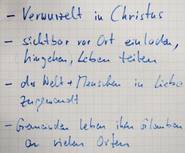 - Verwurzelt in Christus
- sichtbar vor Ort einladen,
hingehen, Leben teilen
- der Welt + Menschen in Liebe
zugewandt
- Gemeinden leben ihren Glauben
an vielen Orten